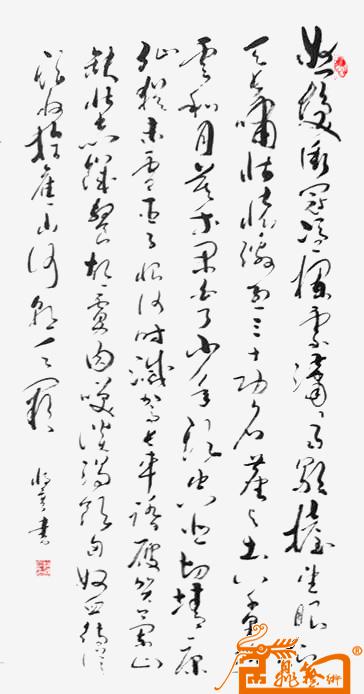 怒发冲冠凭栏处潇潇雨歇抬望眼仰
天长啸壮怀激烈三十功名尘与土八千里路
云和月莫等闲白了少年头空悲切靖康
耻犹未雪臣子恨何时灭驾长车踏破贺兰山
缺壮志饥餐胡虏肉笑谈渴饮匈奴血待从
头收拾旧山河朝天阙
书
艺术